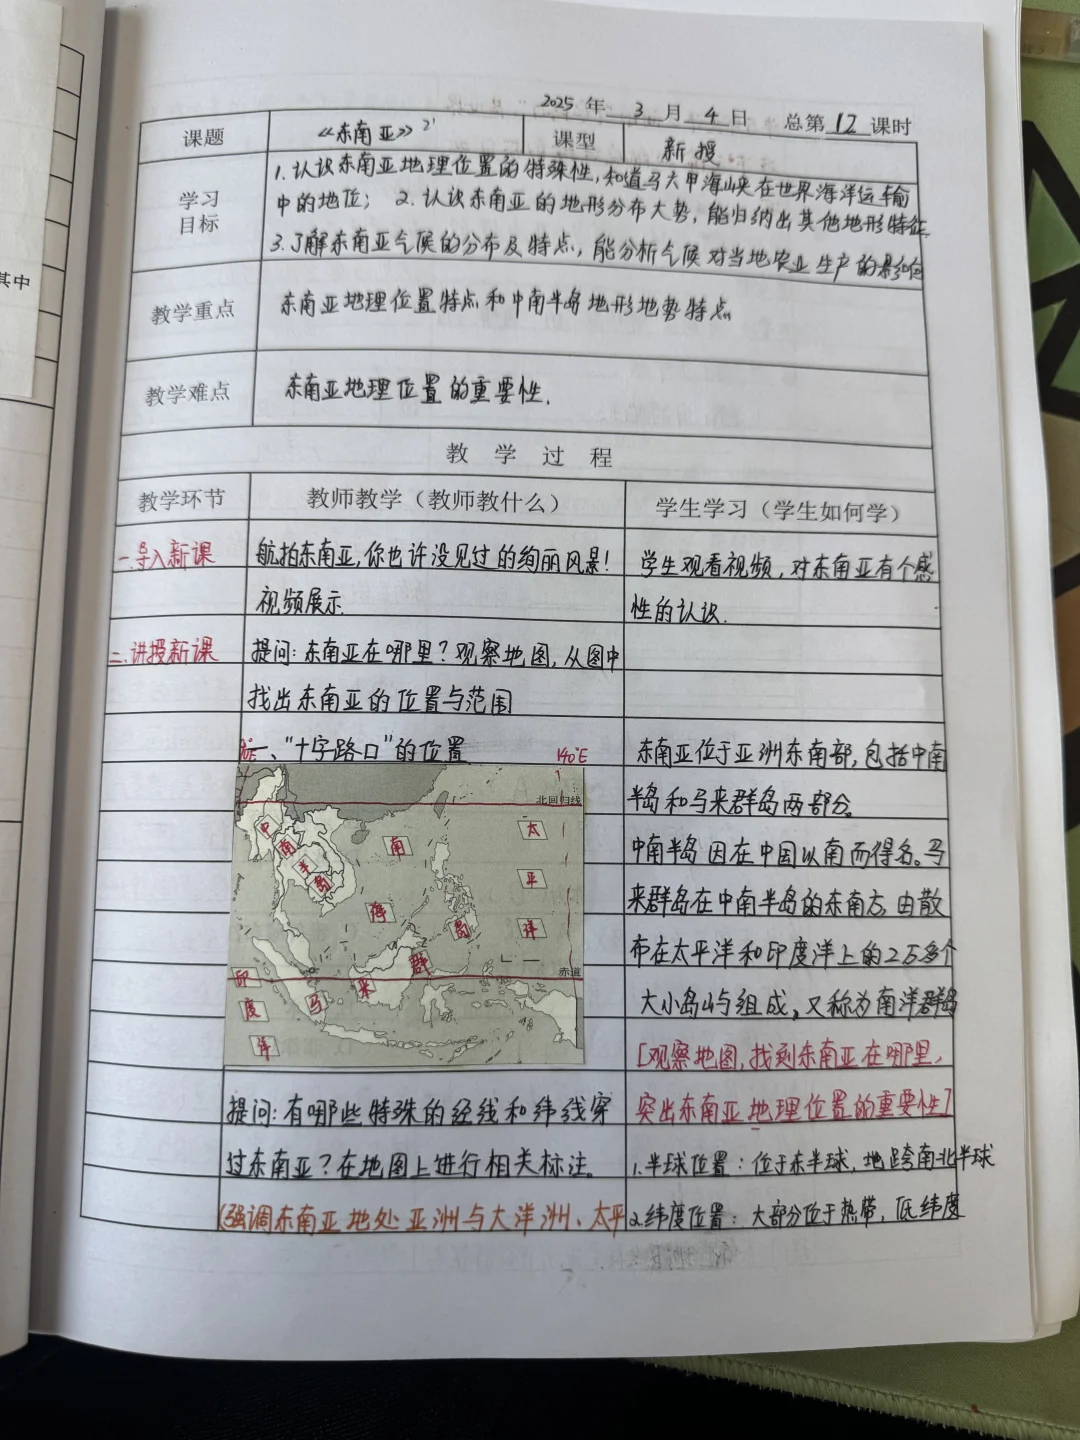 2025 年 3 月 4 日 总第 12 课时
课题 《东南亚》2' 课型 新授
学习目标
1.认识东南亚地理位置的特殊性,知道马六甲海峡在世界海洋运输
中的地位; 2.认识东南亚的地形分布大势,能归纳出其他地形特征
3.了解东南亚气候的分布及特点,能分析气候对当地农业生产的影响
教学重点 东南亚地理位置特点和中南半岛地形地势特点
教学难点 东南亚地理位置的重要性.
教 学 过 程
教学环节 教师教学（教师教什么） 学生学习（学生如何学）
一.导入新课 航拍东南亚,你也许没见过的绚丽风景! 学生观看视频,对东南亚有个感
视频展示 性的认识.
二.讲授新课 提问:东南亚在哪里?观察地图,从图中
找出东南亚的位置与范围
一、“十字路口”的位置 140°E 东南亚位于亚洲东南部,包括中南
半岛和马来群岛两部分。
北回归线
中南半岛
南海
太平洋
马来群岛
赤道
印度洋
中南半岛因在中国以南而得名。马
来群岛在中南半岛的东南方,由散
布在太平洋和印度洋上的2万多个
大小岛屿组成,又称为南洋群岛
[观察地图,找到东南亚在哪里,
提问:有哪些特殊的经线和纬线穿 突出东南亚地理位置的重要性]
过东南亚?在地图上进行相关标注。 1.半球位置:位于东半球,地跨南北半球
(强调东南亚地处亚洲与大洋洲、太平 2.纬度位置:大部分位于热带,低纬度
其中